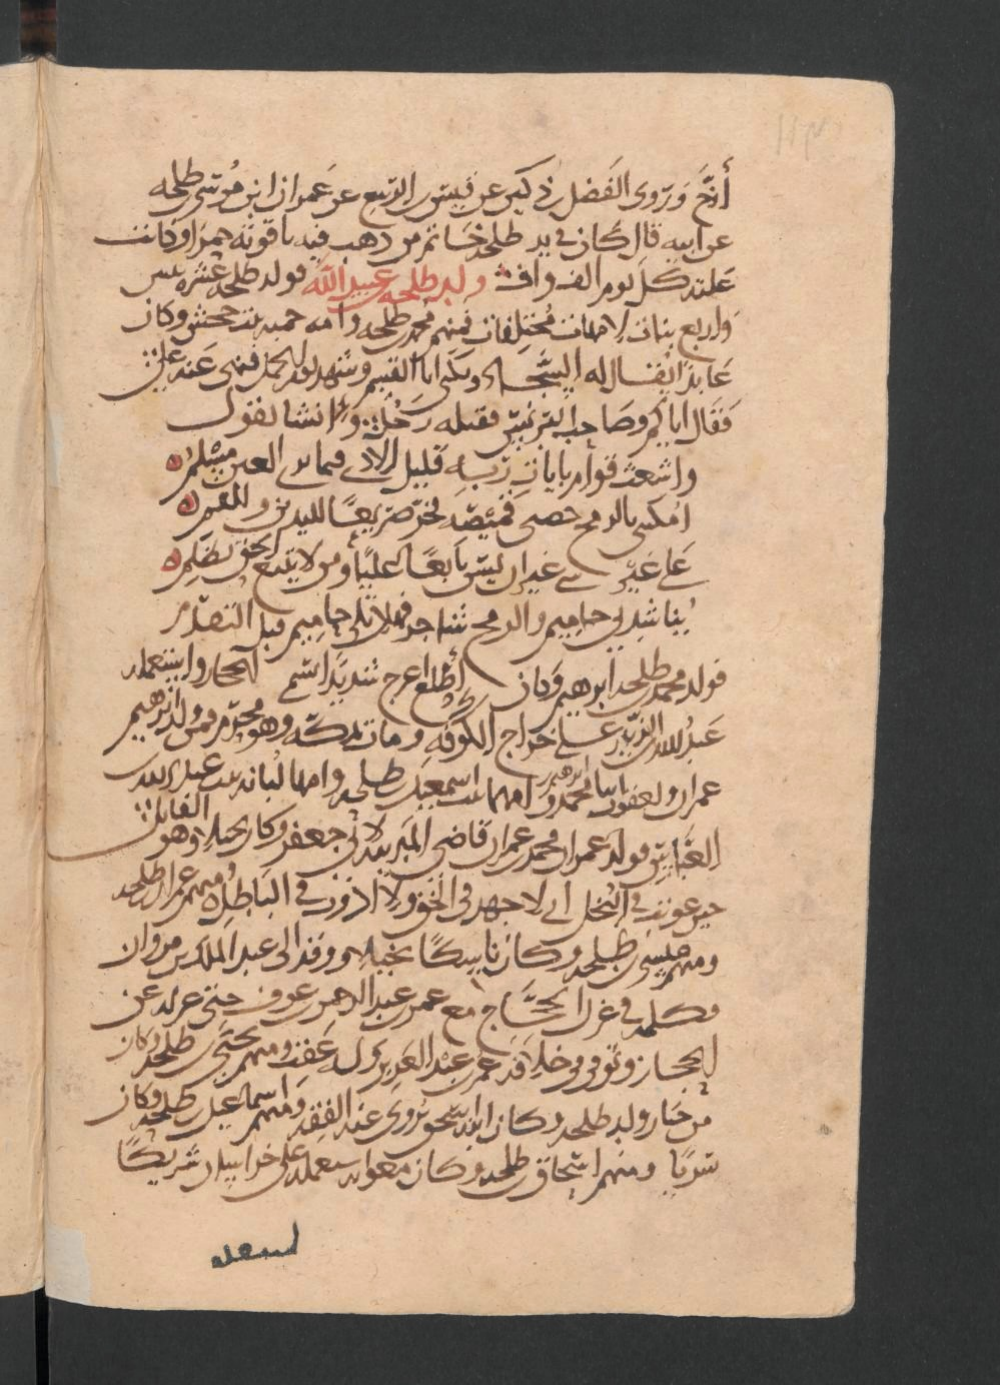 أنح وروى الفضل بن دكين عن قيس بن الربيع عن عمران ابن موسى بن طلحه
عن ابيه قال كان في يد طلحة خاتم من ذهب فيه ياقوتة حمرا وكانت
غلته كل يوم الف واف ولد طلحه بن عبيد الله فولد طلحة عشره بنين
واربع بنات لامهات مختلفات فمنهم محمد بن طلحه وامه حمنه بنت جحش وكان
عابدا يقال له السجاد ويكنى ابا القسم وشهد يوم الجمل فنهى عنه علي
فقال اياكم وصاحب البرنس فقتله رجل وانشا يقول
واشعث قوام بايات ربه قليل الاذى فيما يرى العين مسلم
امكسى بالرمح حصى قميصه فخر صريعا لليدين وللفم
على غير شي غير ان ليس تابعا عليا ومن لا يتبع الحق يظلم
يناشدني حاميم والرمح شاجر فهلا تلى حاميم قبل التقدم
فولد محمد بن طلحة ابرهيم وكان اضلع اعرج شديدا اسد الحجاز واستعمله
عبد الله بن الزبير على خراج الكوفه ومات بمكه وهو محرم فمن ولد ابرهيم
عمران ويعقوب ابنا ابرهيم بن محمد وامهما بنت اسمعيل بن طلحه وامها لبانه بنت عبد الله بن
العباس فولد عمران محمد بن عمران قاضي المدينة لابي جعفر وكان بخيلا وهو القايل
حين عوتب في البخل اني لا اجمد في الحق ولا اذوب في الباطل ومنهم عمران بن طلحه
ومنهم عيسى بن طلحه وكان ناسكا بخيلا ووفد الى عبد الملك بن مروان
فكلمه في عزل الحجاج مع عمر بن عبد الرحمن بن عوف حتى عزله عن
الحجاز وتوفي في خلافة عمر بن عبد العزيز وله عقب ومنهم يحيى بن طلحة وكان
من خيار ولد طلحه وكان ابنه اسحق يروى عنه الفقه ومنهم اسماعيل بن طلحه وكان
سريا ومنهم اسحاق بن طلحه وكان معويه استعمله على خراسان شريكا
لسعيد